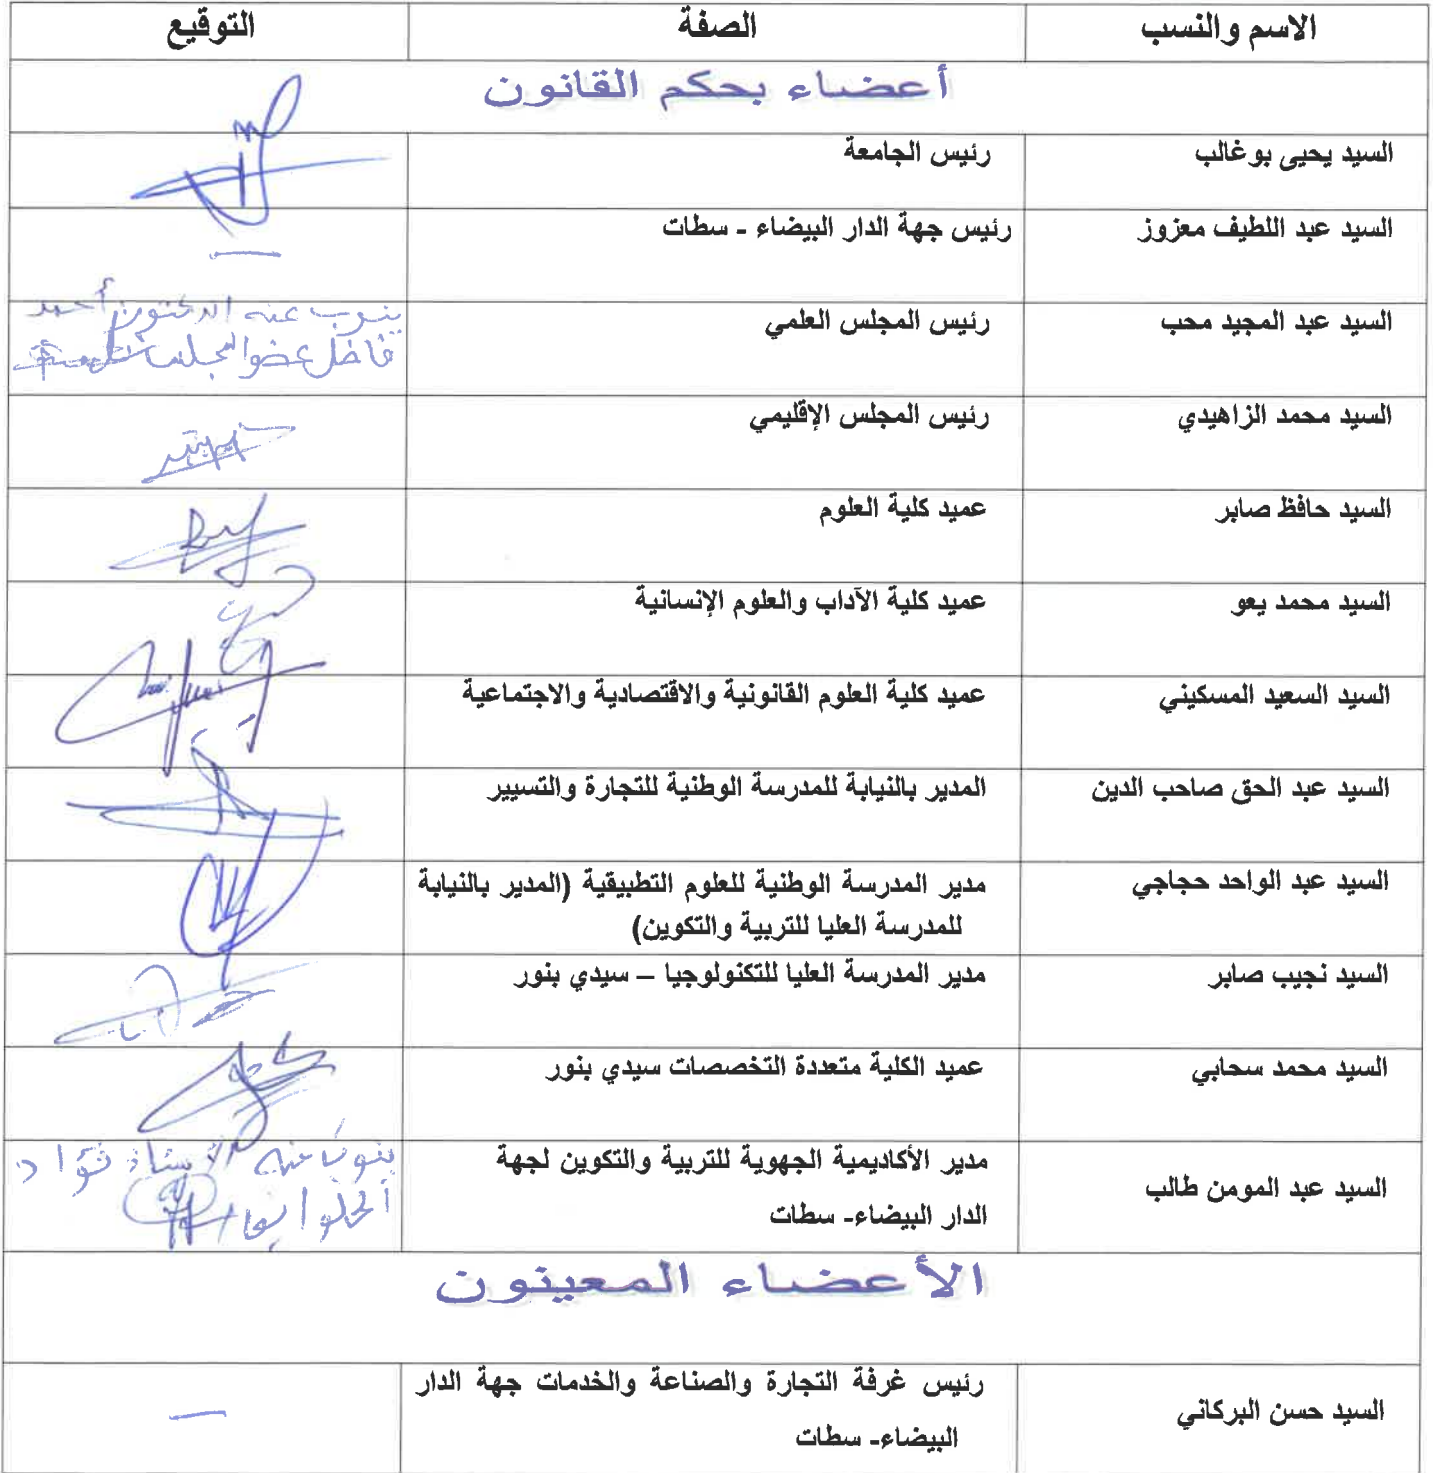 الاسم والنسب الصفة التوقيع
أعضاء بحكم القانون
السيد يحيى بوغالب رئيس الجامعة
السيد عبد اللطيف معزوز رئيس جهة الدار البيضاء - سطات
السيد عبد المجيد محب رئيس المجلس العلمي
ينوب عنه الدكتور أحمد
فاضل عضو المجلس
السيد محمد الزاهيدي رئيس المجلس الإقليمي
السيد حافظ صابر عميد كلية العلوم
السيد محمد يعو عميد كلية الآداب والعلوم الإنسانية
السيد السعيد المسكيني عميد كلية العلوم القانونية والاقتصادية والاجتماعية
السيد عبد الحق صاحب الدين المدير بالنيابة للمدرسة الوطنية للتجارة والتسيير
السيد عبد الواحد حجاجي مدير المدرسة الوطنية للعلوم التطبيقية (المدير بالنيابة
للمدرسة العليا للتربية والتكوين)
السيد نجيب صابر مدير المدرسة العليا للتكنولوجيا – سيدي بنور
السيد محمد سحابي عميد الكلية متعددة التخصصات سيدي بنور
السيد عبد المومن طالب مدير الأكاديمية الجهوية للتربية والتكوين لجهة
الدار البيضاء- سطات
ينوب عنه الأستاذ فؤاد
الأعضاء المعينون
السيد حسن البركاني رئيس غرفة التجارة والصناعة والخدمات جهة الدار
البيضاء- سطات